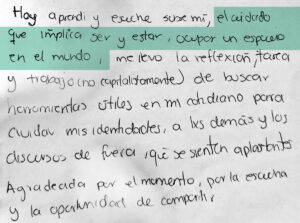 Hoy aprendí y escuche sobre mí, el cuidado
que implica ser y estar, ocupar un espacio
en el mundo, me llevo la reflexión, tarea
y trabajo (no capitalistamente) de buscar
herramientas útiles en mi cotidiano para
cuidar mis identidades, a lxs demás y los
discursos de fuera que se sienten aplastantes
Agradecida por el momento, por la escucha
y la oportunidad de compartir